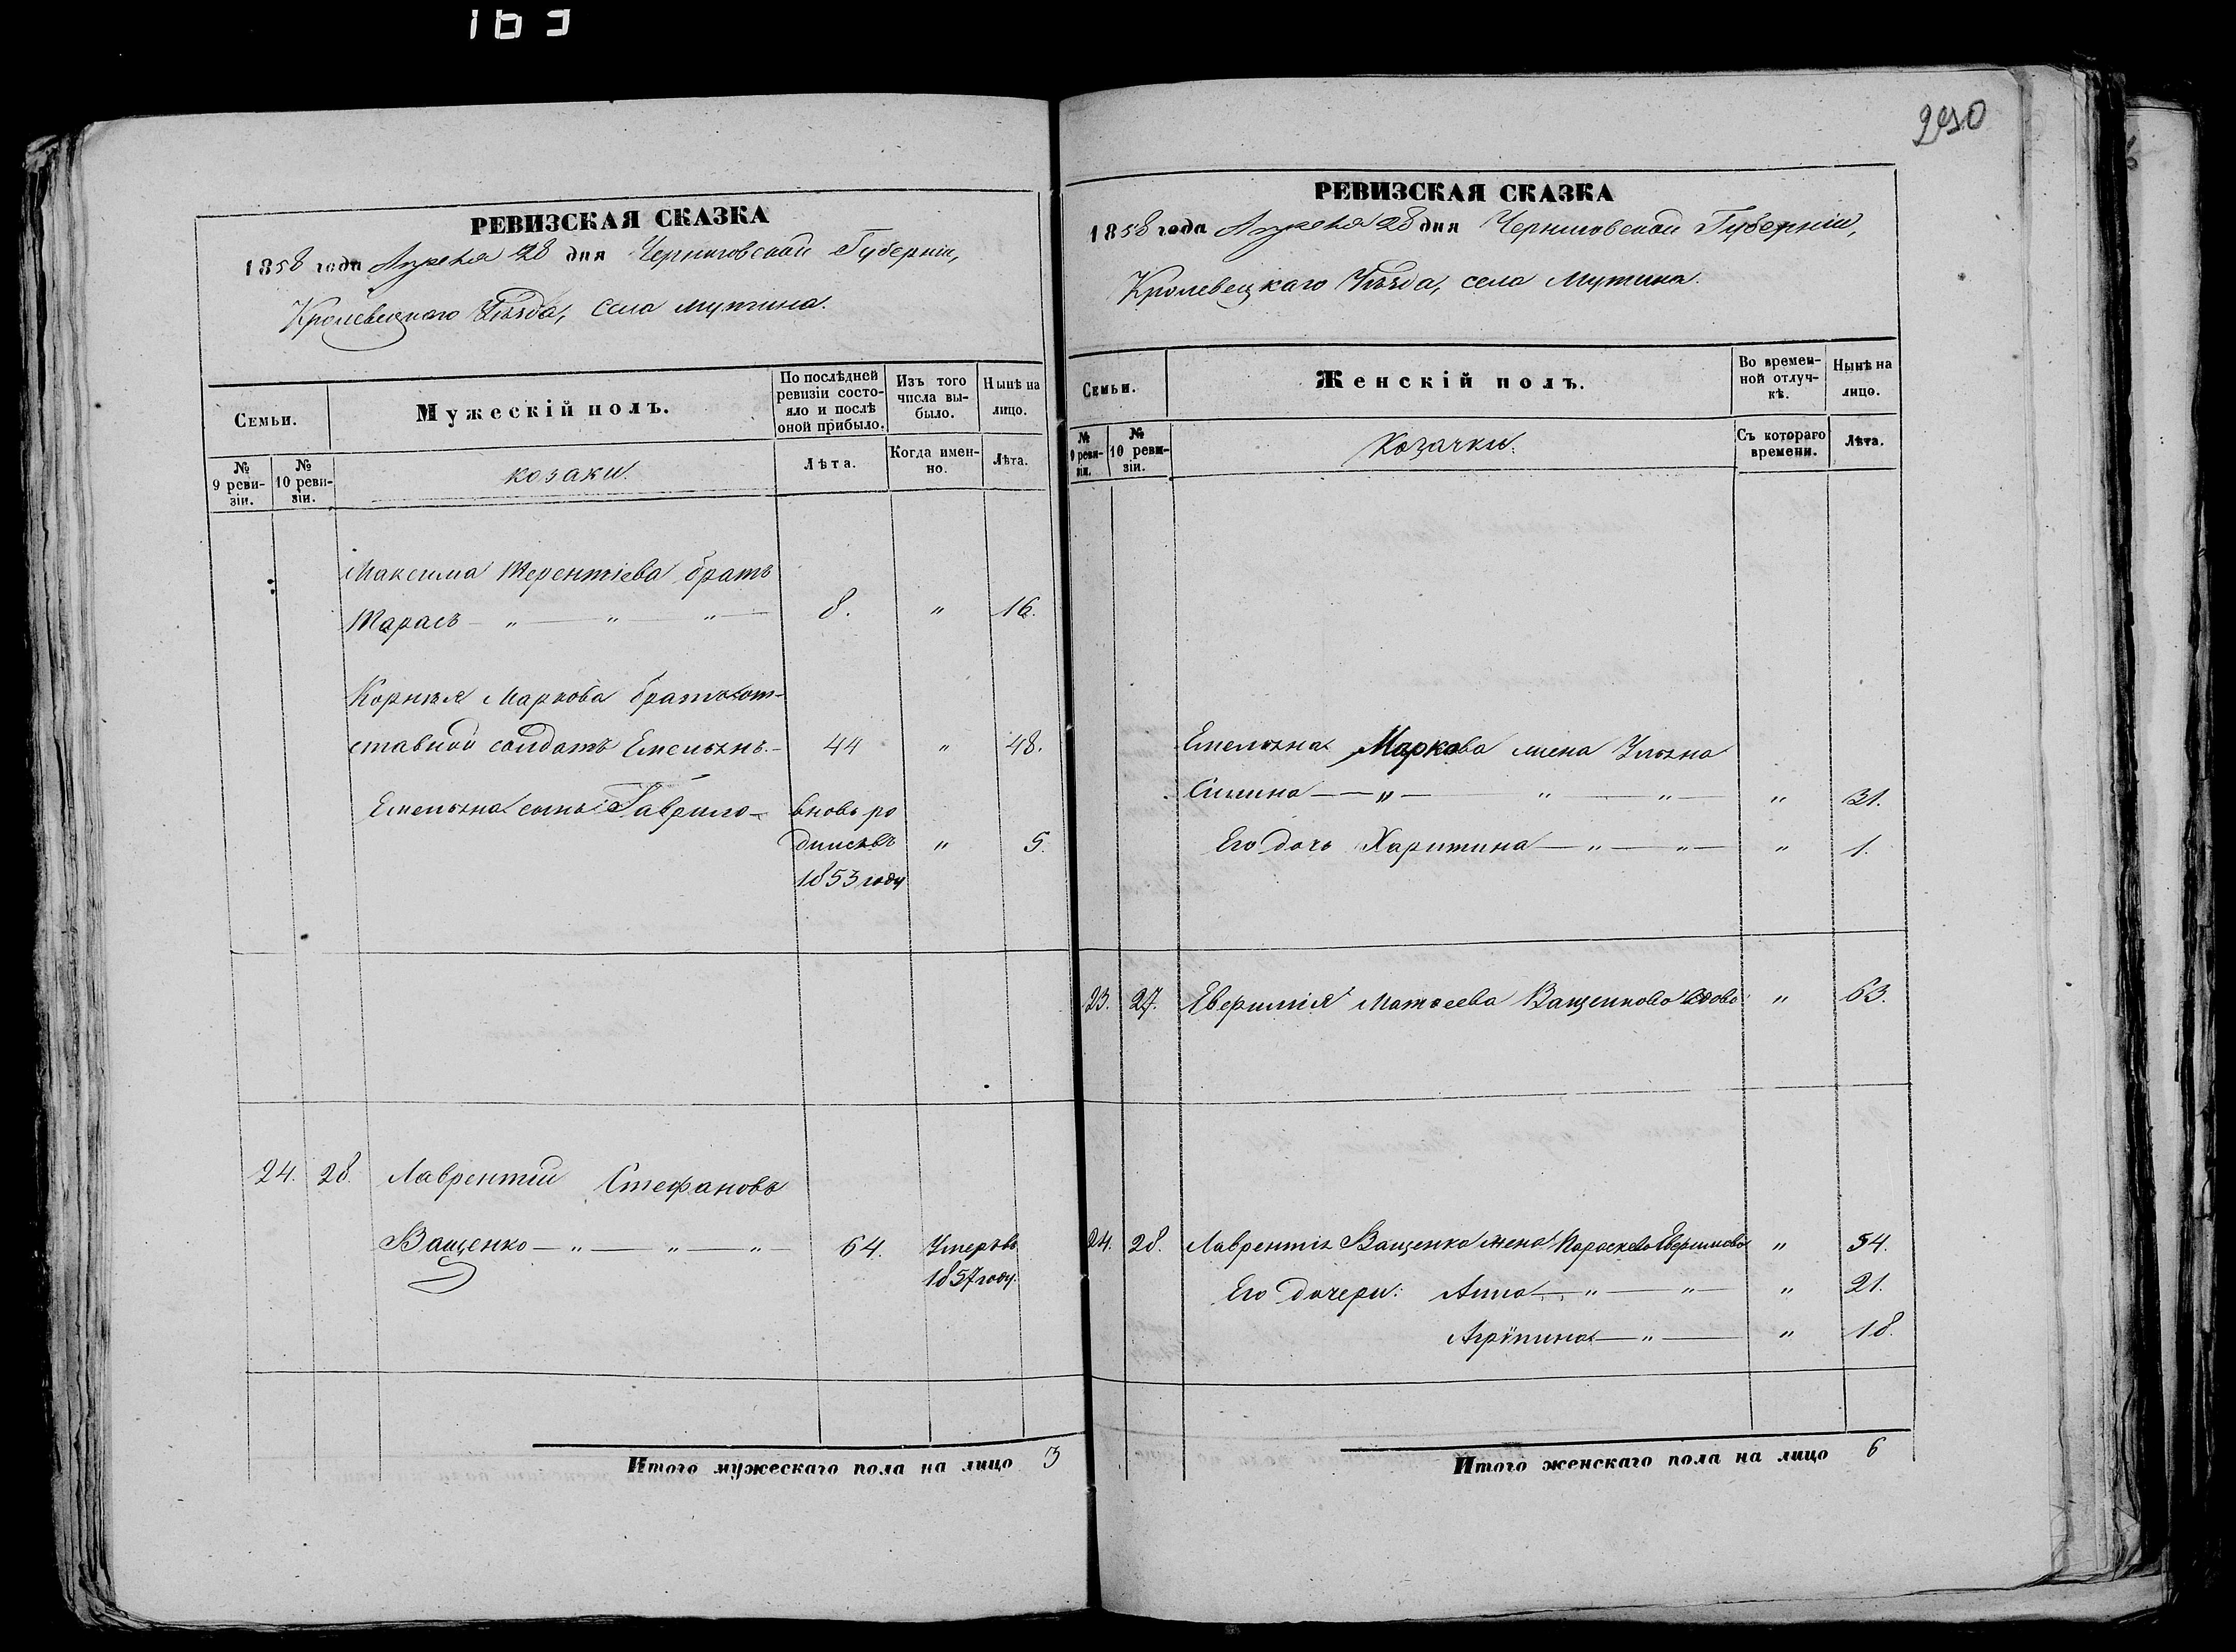 290
РЕВИЗСКАЯ СКАЗКА
1858 года Апреля 28 дня Черниговской Губерніи,
Кролевецкаго Уѣзда, села Мутина.
Семьи.
Мужескій полъ.
По послѣдней ревизіи состояло и послѣ оной прибыло.
Изъ того числа выбыло.
Нынѣ на лицо.
№ 9 ревизіи.
№ 10 ревизіи.
козаки.
Лѣта.
Когда именно.
Лѣта.
Максима Терентіева братъ
Тарасъ — " — " — " — 8. " 16.
Корнѣя Маркова братъ от-
ставной солдатъ Емельянъ. — 44 " 48.
Емельяна сынъ Гаврило — вновь ро
дился въ " 5.
1853 году
24. 28. Лаврентій Стефановъ
Ващенко — " — " — " 64. Умеръ въ
1857 году.
Итого мужескаго пола на лицо 3
РЕВИЗСКАЯ СКАЗКА
1858 года Апреля 28 дня Черниговской Губерніи,
Кролевецкаго Уѣзда, села Мутина.
Семьи.
Женскій полъ.
Во временной отлучкѣ.
Нынѣ на лицо.
№ 9 ревизіи.
№ 10 ревизіи.
Козачки.
Съ котораго времени.
Лѣта.
Емельяна Маркова жена Ульяна
Силина — " — " — " — " 31.
Его дочь Харитина — " — " — " 1.
23. 27. Матвеева Ващенкова вдова " 63.
24. 28. Лаврентія Ващенка жена Параскева " 54.
Его дочери: Анна — " — " — " 21.
Агріпина — " — " 18.
Итого женскаго пола на лицо 6